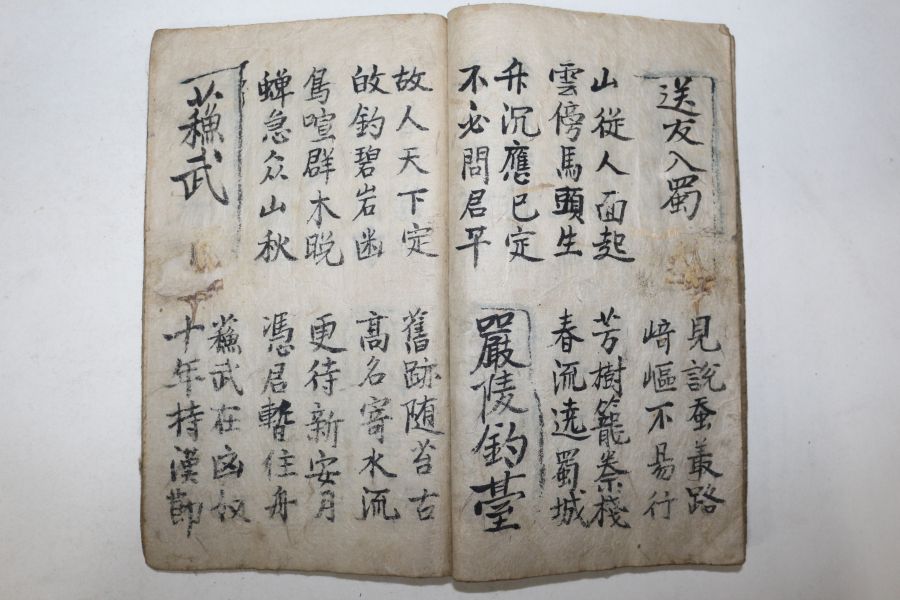 送友入蜀
見說蚕叢路
崎嶇不易行
山從人面起
雲傍馬頭生
芳樹籠秦棧
春流遶蜀城
升沉應已定
不必問君平
嚴陵釣臺
故人天下定
釣碧岩幽
舊跡随苔古
高名寄水流
鳥喧群木晚
蟬急众山秋
更待新安月
憑君暫住舟
蘓武
蘓武在凶奴
十年持漢節